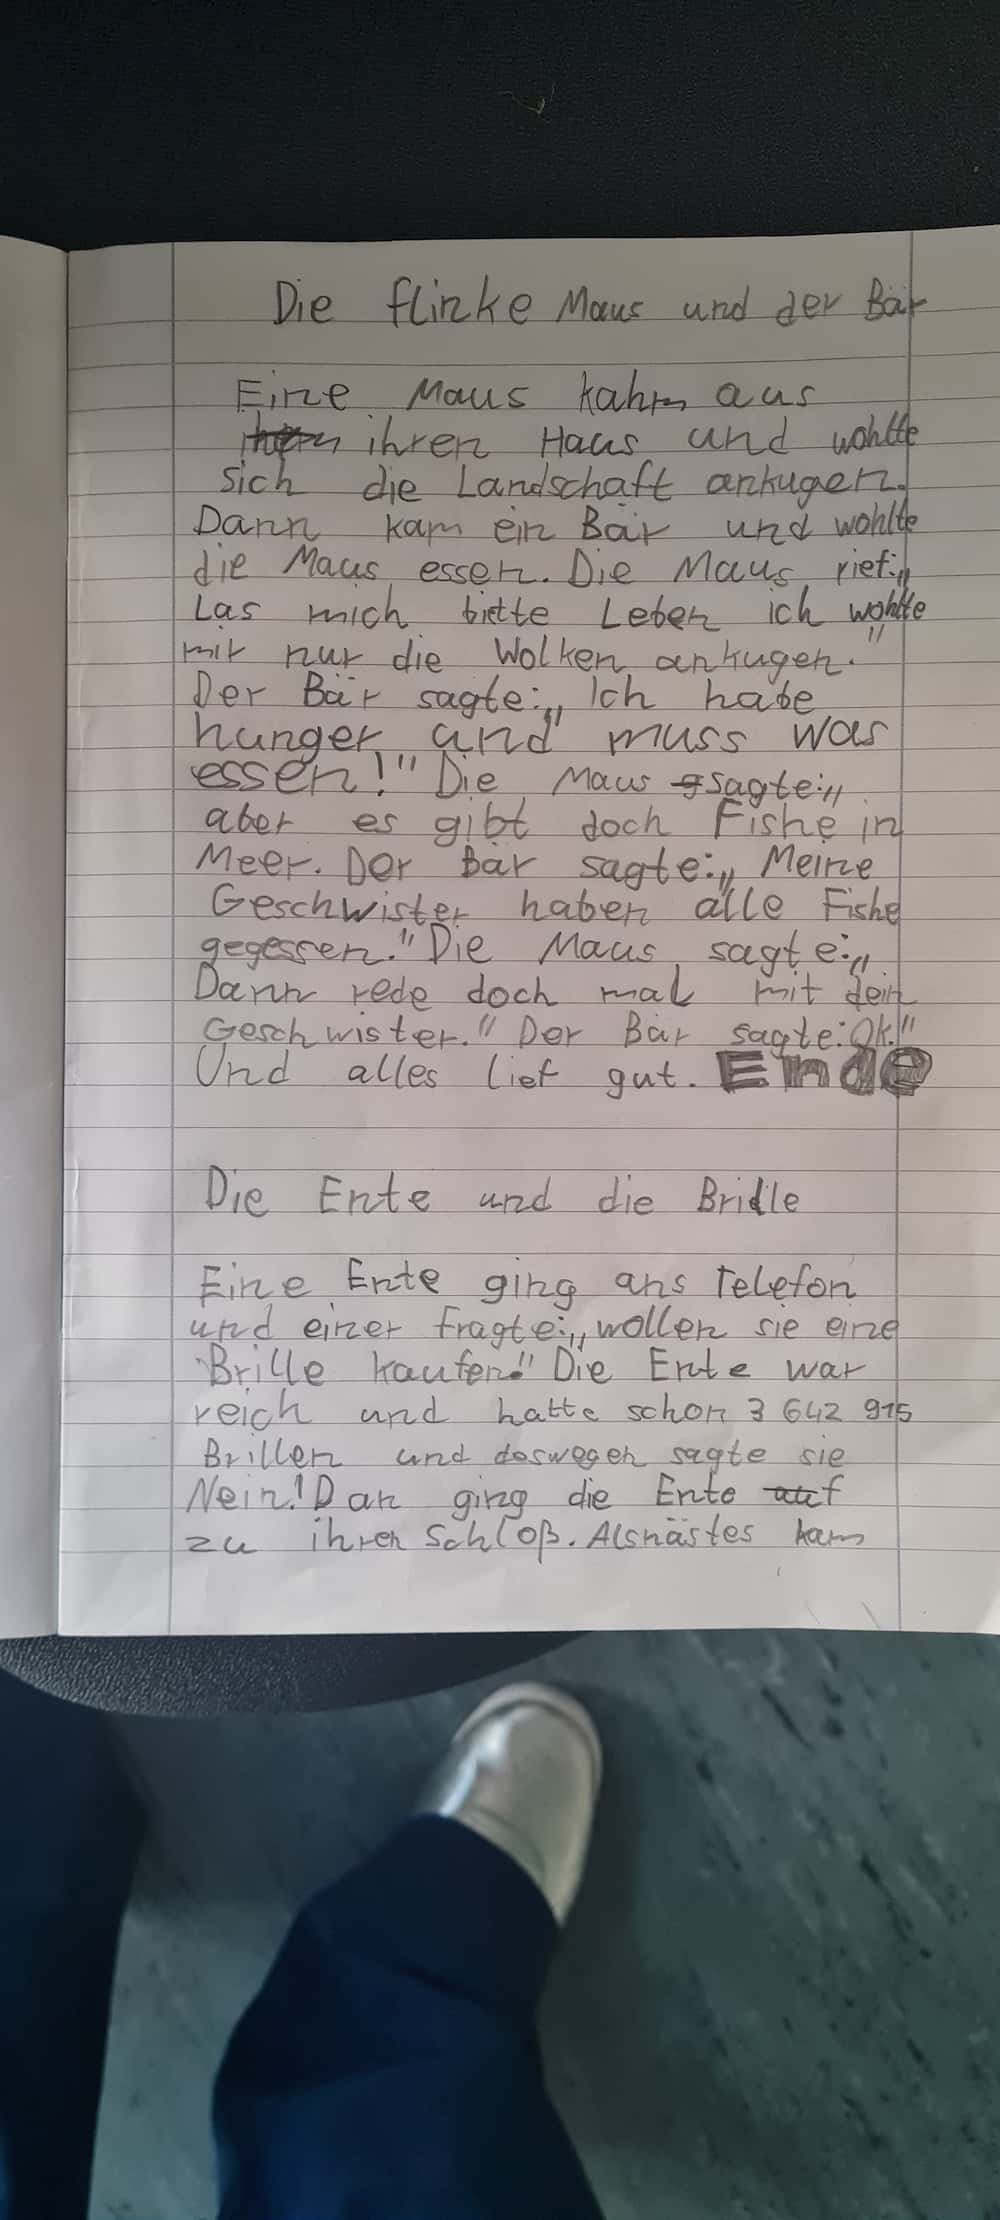 Die flinke Maus und der Bär
Eine Maus kahm aus
ihren Haus und wohlte
sich die Landschaft ankugen.
Dann kam ein Bär und wohlte
die Maus essen. Die Maus rief:„
Las mich bitte Leben ich wohlte
mir nur die Wolken ankugen."
Der Bär sagte:„Ich habe
hunger und muss was
essen!" Die Maus sagte:„
aber es gibt doch Fishe in
Meer. Der Bär sagte:„Meine
Geschwister haben alle Fishe
gegessen." Die Maus sagte:„
Dann rede doch mal mit dein
Geschwister." Der Bär sagte:Ok!"
Und alles lief gut. Ende
Die Ente und die Brille
Eine Ente ging ans Telefon
und einer fragte:„wollen sie eine
Brille kaufen!" Die Ente war
reich und hatte schon 3 642 915
Brillen und deswegen sagte sie
Nein! Dan ging die Ente auf
zu ihren Schloß. Alsnästes kam